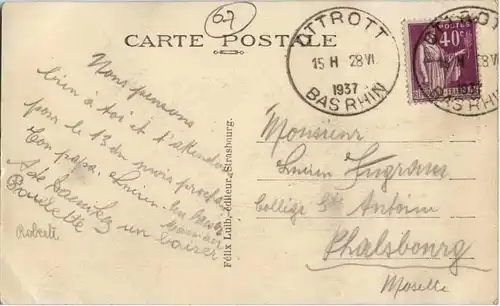 07
CARTE POSTALE
OTTROTT
15 H 28 VI
1937
BAS RHIN
40c
Nous pensons
bien à toi et t'attendons
pour le 13 du mois prochain
Ton papa. Lucien.
un baiser
Paulette
Robert
Félix Luib, éditeur, Strasbourg.
Monsieur
Lucien Ingram
Collège St Antoine
Phalsbourg
Moselle